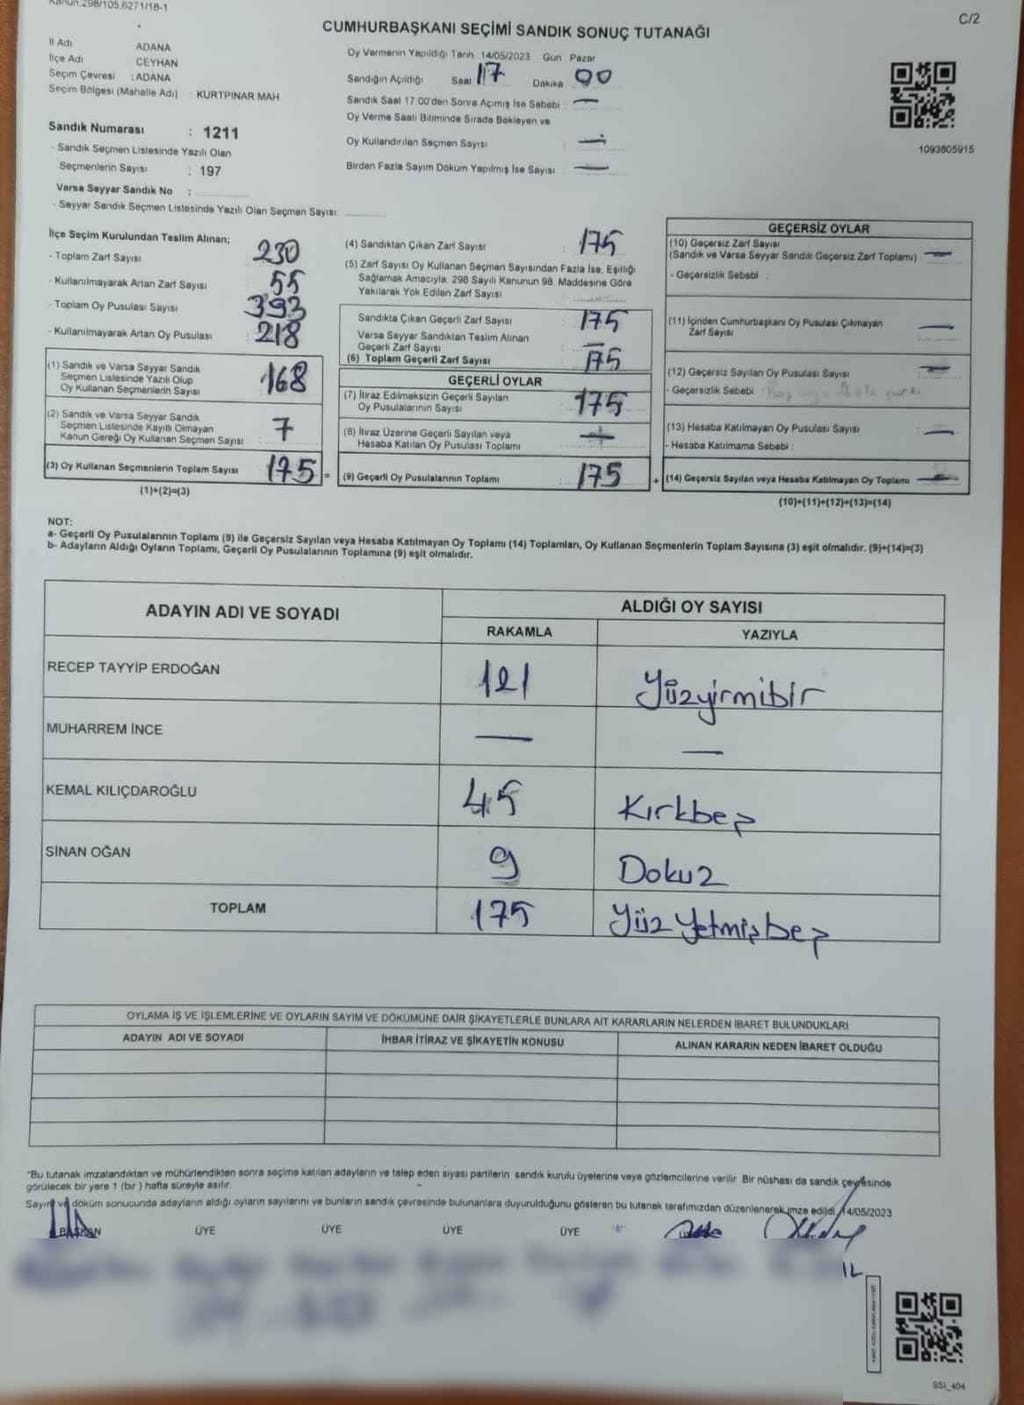 Kanun:298/105,6271/18-1
C/2
CUMHURBAŞKANI SEÇİMİ SANDIK SONUÇ TUTANAĞI
İl Adı ADANA
İlçe Adı CEYHAN
Seçim Çevresi : ADANA
Seçim Bölgesi (Mahalle Adı) KURTPINAR MAH
Sandık Numarası : 1211
- Sandık Seçmen Listesinde Yazılı Olan
Seçmenlerin Sayısı : 197
Varsa Seyyar Sandık No :
- Seyyar Sandık Seçmen Listesinde Yazılı Olan Seçmen Sayısı
Oy Vermenin Yapıldığı Tarih 14/05/2023 Gün Pazar
Sandığın Açıldığı Saat 17 Dakika 00
Sandık Saat 17.00'den Sonra Açımış İse Sebebi : —
Oy Verme Saati Bitiminde Sırada Bekleyen ve
Oy Kullandırılan Seçmen Sayısı : —
Birden Fazla Sayım Döküm Yapılmış İse Sayısı : —
1093805915
İlçe Seçim Kurulundan Teslim Alınan;
- Toplam Zarf Sayısı 230
- Kullanılmayarak Artan Zarf Sayısı 55
- Toplam Oy Pusulası Sayısı 393
- Kullanılmayarak Artan Oy Pusulası 218
(1) Sandık ve Varsa Seyyar Sandık
Seçmen Listesinde Yazılı Olup
Oy Kullanan Seçmenlerin Sayısı 168
(2) Sandık ve Varsa Seyyar Sandık
Seçmen Listesinde Kayıtlı Olmayan
Kanun Gereği Oy Kullanan Seçmen Sayısı 7
(3) Oy Kullanan Seçmenlerin Toplam Sayısı 175 =
(1)+(2)=(3)
(4) Sandıktan Çıkan Zarf Sayısı : 175
(5) Zarf Sayısı Oy Kullanan Seçmen Sayısından Fazla İse, Eşitliği
Sağlamak Amacıyla, 298 Sayılı Kanunun 98. Maddesine Göre
Yakılarak Yok Edilen Zarf Sayısı
Sandıkta Çıkan Geçerli Zarf Sayısı 175
Varsa Seyyar Sandıktan Teslim Alınan
Geçerli Zarf Sayısı —
(6) Toplam Geçerli Zarf Sayısı 175
GEÇERLİ OYLAR
(7) İtiraz Edilmeksizin Geçerli Sayılan
Oy Pusulalarının Sayısı 175
(8) İtiraz Üzerine Geçerli Sayılan veya
Hesaba Katılan Oy Pusulası Toplamı
(9) Geçerli Oy Pusulalarının Toplamı : 175 +
GEÇERSİZ OYLAR
(10) Geçersiz Zarf Sayısı
(Sandık ve Varsa Seyyar Sandık Geçersiz Zarf Toplamı) —
- Geçersizlik Sebebi :
(11) İçinden Cumhurbaşkanı Oy Pusulası Çıkmayan
Zarf Sayısı —
(12) Geçersiz Sayılan Oy Pusulası Sayısı —
- Geçersizlik Sebebi :
(13) Hesaba Katılmayan Oy Pusulası Sayısı —
- Hesaba Katılmama Sebebi :
(14) Geçersiz Sayılan veya Hesaba Katılmayan Oy Toplamı
(10)+(11)+(12)+(13)=(14)
NOT:
a- Geçerli Oy Pusulalarının Toplamı (9) ile Geçersiz Sayılan veya Hesaba Katılmayan Oy Toplamı (14) Toplamları, Oy Kullanan Seçmenlerin Toplam Sayısına (3) eşit olmalıdır. (9)+(14)=(3)
b- Adayların Aldığı Oyların Toplamı, Geçerli Oy Pusulalarının Toplamına (9) eşit olmalıdır.
ADAYIN ADI VE SOYADI ALDIĞI OY SAYISI
RAKAMLA YAZIYLA
RECEP TAYYİP ERDOĞAN 121 Yüzyirmibir
MUHARREM İNCE — —
KEMAL KILIÇDAROĞLU 45 Kırkbeş
SİNAN OĞAN 9 Dokuz
TOPLAM 175 Yüz Yetmişbeş
OYLAMA İŞ VE İŞLEMLERİNE VE OYLARIN SAYIM VE DÖKÜMÜNE DAİR ŞİKAYETLERLE BUNLARA AİT KARARLARIN NELERDEN İBARET BULUNDUKLARI
ADAYIN ADI VE SOYADI İHBAR İTİRAZ VE ŞİKAYETİN KONUSU ALINAN KARARIN NEDEN İBARET OLDUĞU
*Bu tutanak imzalandıktan ve mühürlendikten sonra seçime katılan adayların ve talep eden siyasi partilerin sandık kurulu üyelerine veya gözlemcilerine verilir. Bir nüshası da sandık çevresinde
görülecek bir yere 1 (bir) hafta süreyle asılır.
Sayım ve döküm sonucunda adayların aldığı oyların sayılarını ve bunların sandık çevresinde bulunanlara duyurulduğunu gösteren bu tutanak tarafımızdan düzenlenerek imza edildi. 14/05/2023
BAŞKAN ÜYE ÜYE ÜYE ÜYE
SSİ_404